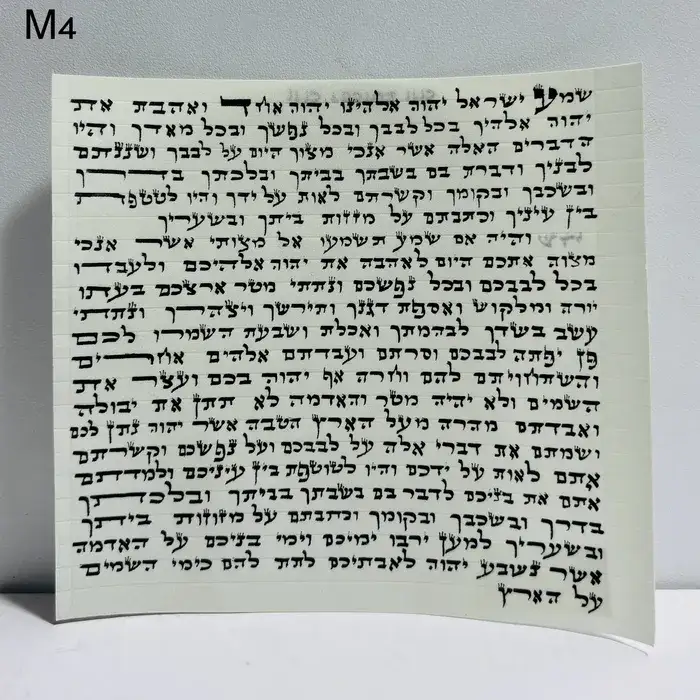 M4
שמע ישראל יהוה אלהינו יהוה אחד ואהבת את
יהוה אלהיך בכל לבבך ובכל נפשך ובכל מאדך והיו
הדברים האלה אשר אנכי מצוך היום על לבבך ושננתם
לבניך ודברת בם בשבתך בביתך ובלכתך בדרך
ובשכבך ובקומך וקשרתם לאות על ידך והיו לטטפת
בין עיניך וכתבתם על מזזות ביתך ובשעריך
והיה אם שמע תשמעו אל מצותי אשר אנכי
מצוה אתכם היום לאהבה את יהוה אלהיכם ולעבדו
בכל לבבכם ובכל נפשכם ונתתי מטר ארצכם בעתו
יורה ומלקוש ואספת דגנך ותירשך ויצהרך ונתתי
עשב בשדך לבהמתך ואכלת ושבעת השמרו לכם
פן יפתה לבבכם וסרתם ועבדתם אלהים אחרים
והשתחויתם להם וחרה אף יהוה בכם ועצר את
השמים ולא יהיה מטר והאדמה לא תתן את יבולה
ואבדתם מהרה מעל הארץ הטבה אשר יהוה נתן לכם
ושמתם את דברי אלה על לבבכם ועל נפשכם וקשרתם
אתם לאות על ידכם והיו לטוטפת בין עיניכם ולמדתם
אתם את בניכם לדבר בם בשבתך בביתך ובלכתך
בדרך ובשכבך ובקומך וכתבתם על מזוזות ביתך
ובשעריך למען ירבו ימיכם וימי בניכם על האדמה
אשר נשבע יהוה לאבתיכם לתת להם כימי השמים
על הארץ